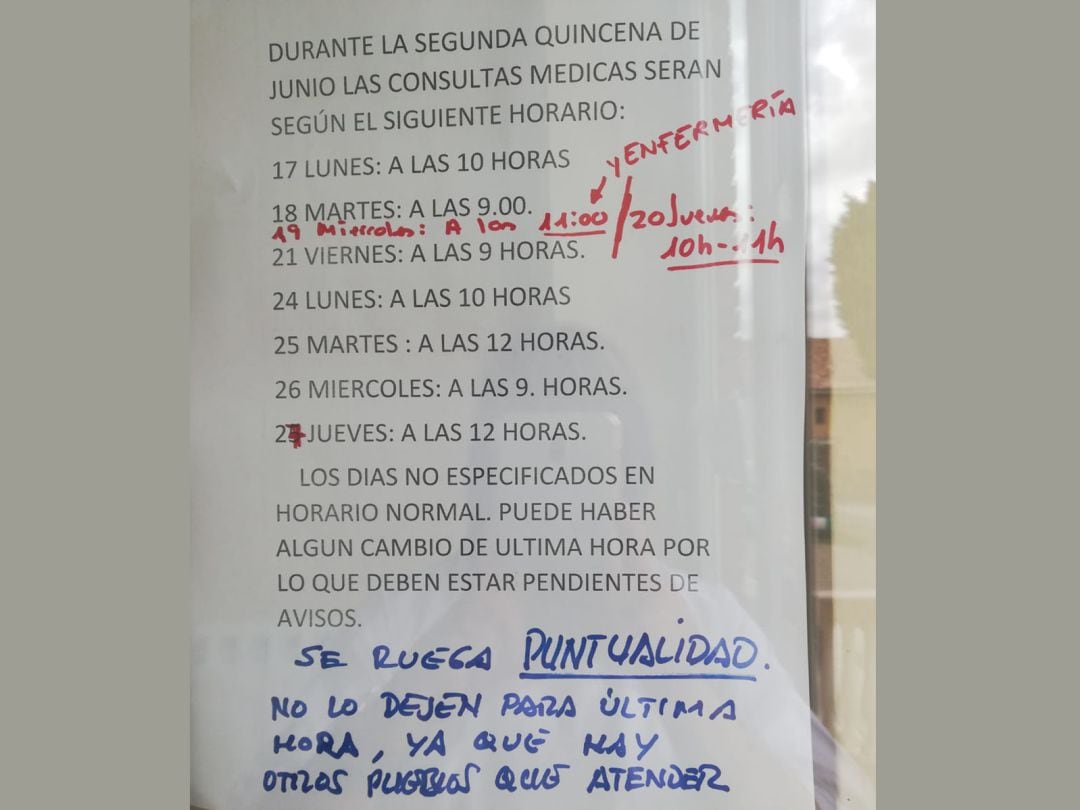 DURANTE LA SEGUNDA QUINCENA DE
JUNIO LAS CONSULTAS MEDICAS SERAN
SEGÚN EL SIGUIENTE HORARIO:
y ENFERMERÍA
17 LUNES: A LAS 10 HORAS
18 MARTES: A LAS 9.00.
19 Miercoles: A las 11:00 / 20 Jueves:
10h-11h
21 VIERNES: A LAS 9 HORAS.
24 LUNES: A LAS 10 HORAS
25 MARTES : A LAS 12 HORAS.
26 MIERCOLES: A LAS 9. HORAS.
27 JUEVES: A LAS 12 HORAS.
LOS DIAS NO ESPECIFICADOS EN
HORARIO NORMAL. PUEDE HABER
ALGUN CAMBIO DE ULTIMA HORA POR
LO QUE DEBEN ESTAR PENDIENTES DE
AVISOS.
SE RUEGA PUNTUALIDAD.
NO LO DEJEN PARA ÚLTIMA
HORA, YA QUE HAY
OTROS PUEBLOS QUE ATENDER